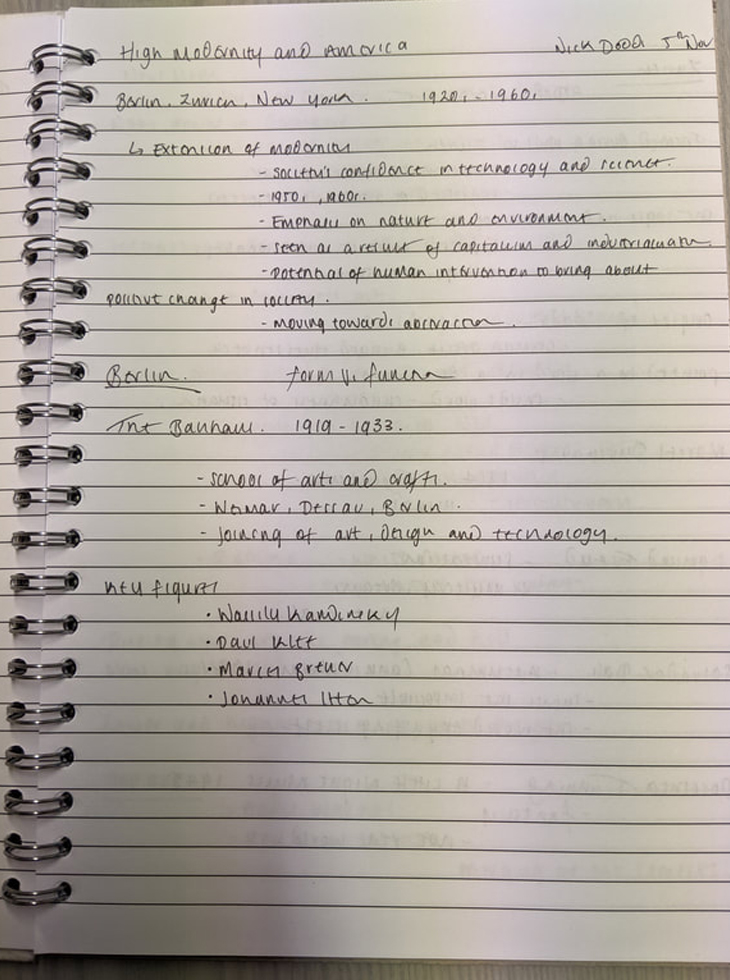 High Modernity and America Nick Dodd 5th Nov
Berlin, Zurich, New York. 1920s - 1960s
↳ Extension of modernity
- society's confidence in technology and science.
- 1950s, 1960s.
- Emphasis on nature and environment.
- seen as a result of capitalism and industrialisation.
- potential of human intervention to bring about
positive change in society.
- moving towards abstraction.
Berlin. form v. function
The Bauhaus. 1919 - 1933.
- school of arts and crafts.
- Weimar, Dessau, Berlin.
- Joining of art, design and technology.
key figures
• Wassily Kandinsky
• Paul Klee
• Marcel Breuer
• Johannes Itten